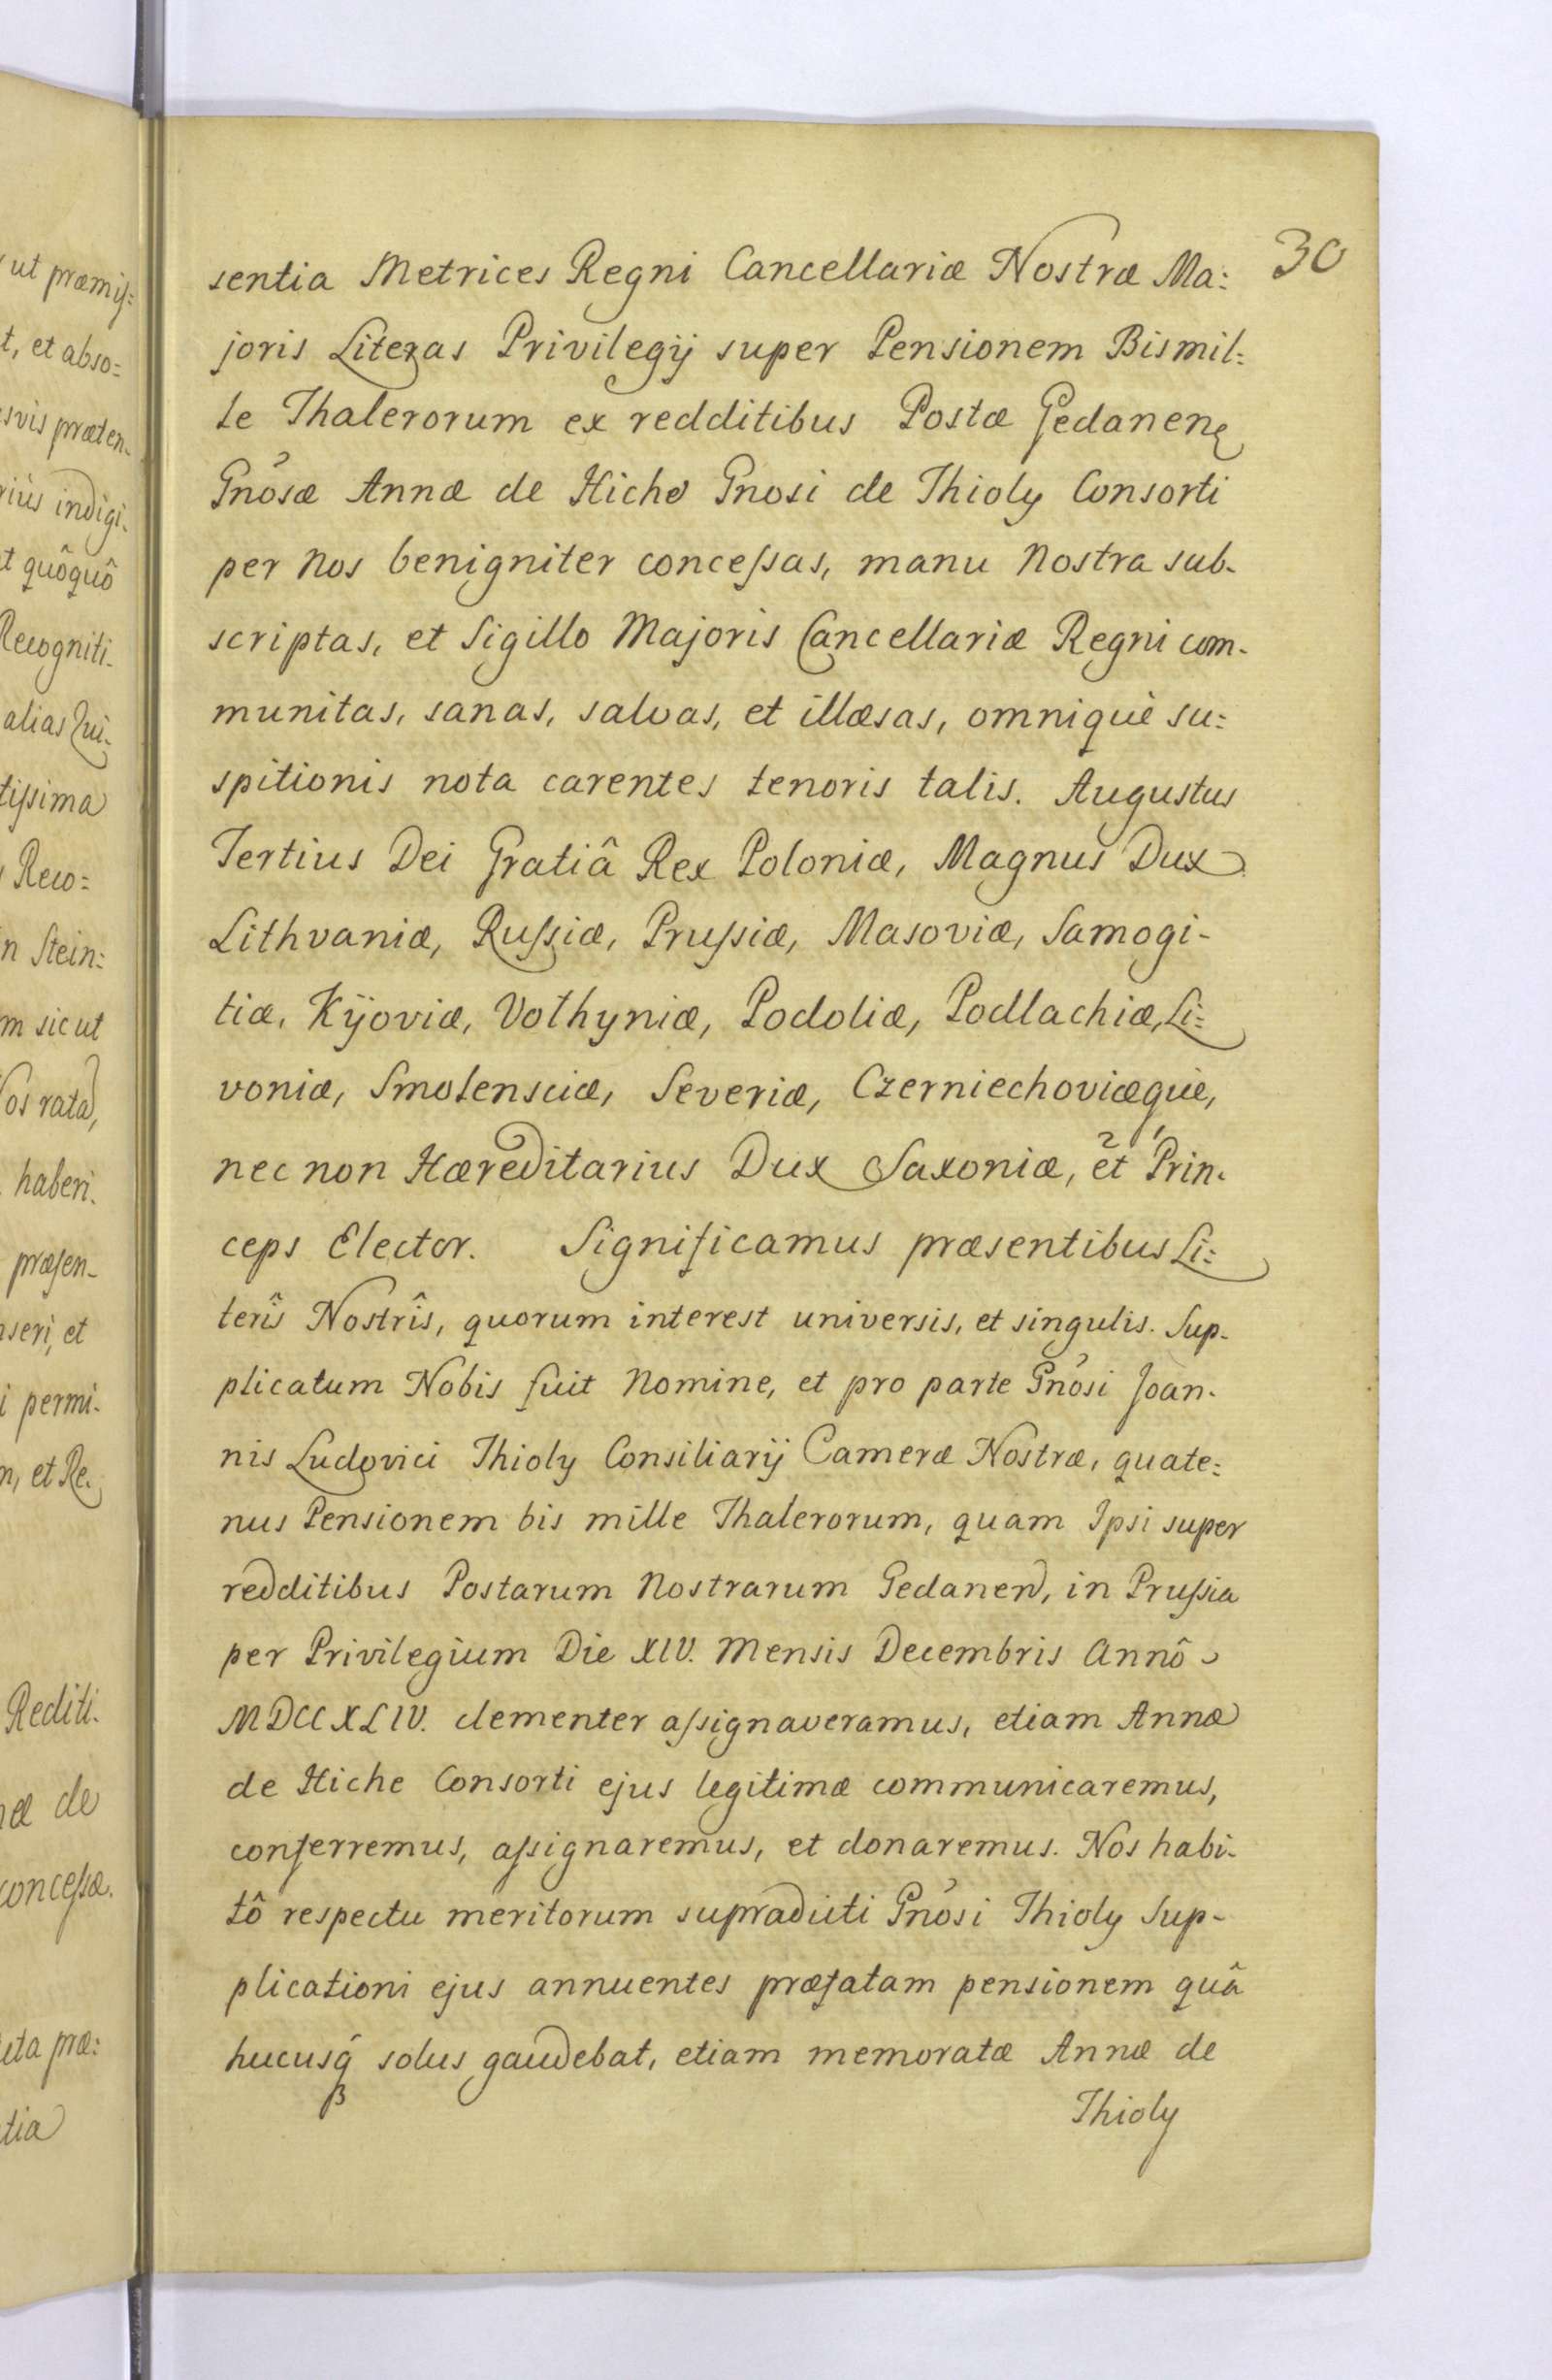 30
sentia Metrices Regni Cancellariæ Nostræ Ma:
joris Literas Privilegij super Pensionem Bismil:
le Thalerorum ex redditibus Postæ Gedanen
Gnosæ Annæ de Hiche Gnosi de Thioly Consorti
per Nos benigniter concessas, manu Nostra sub-
scriptas, et Sigillo Majoris Cancellariæ Regni com-
munitas, sanas, salvas, et illæsas, omniquè su:
spitionis nota carentes tenoris talis. Augustus
Tertius Dei Gratiâ Rex Poloniæ, Magnus Dux
Lithvaniæ, Russiæ, Prussiæ, Masoviæ, Samogi-
tiæ, Kÿoviæ, Volhyniæ, Podoliæ, Podlachiæ, Li:
voniæ, Smolensciæ, Severiæ, Czerniechoviæque,
nec non Hæreditarius Dux Saxoniæ, et Prin-
ceps Elector. Significamus præsentibus Li:
terîs Nostrîs, quorum interest universis, et singulis. Sup-
plicatum Nobis fuit Nomine, et pro parte Gnosi Joan-
nis Ludovici Thioly Consiliarij Cameræ Nostræ, quate:
nus Pensionem bis mille Thalerorum, quam Ipsi super
redditibus Postarum Nostrarum Gedanen, in Prussia
per Privilegium Die XIV. Mensis Decembris Annô
MDCCXLIV. clementer assignaveramus, etiam Annæ
de Hiche Consorti ejus legitimæ communicaremus,
conferremus, assignaremus, et donaremus. Nos habi-
tô respectu meritorum supradicti Gnosi Thioly Sup-
plicationi ejus annuentes præfatam pensionem quâ
hucusq solus gaudebat, etiam memoratæ Annæ de
Thioly
ut præmis:
t, et abso:
svis præten-
riùs indigi-
t quôquô
Recogniti-
alias Qui-
tissima
Reco:
n Stein:
m sic ut
os rata,
haberi.
præsen-
nseri, et
i permi-
n, et Re-
Rediti-
æ de
concessæ.
ita præ:
tia